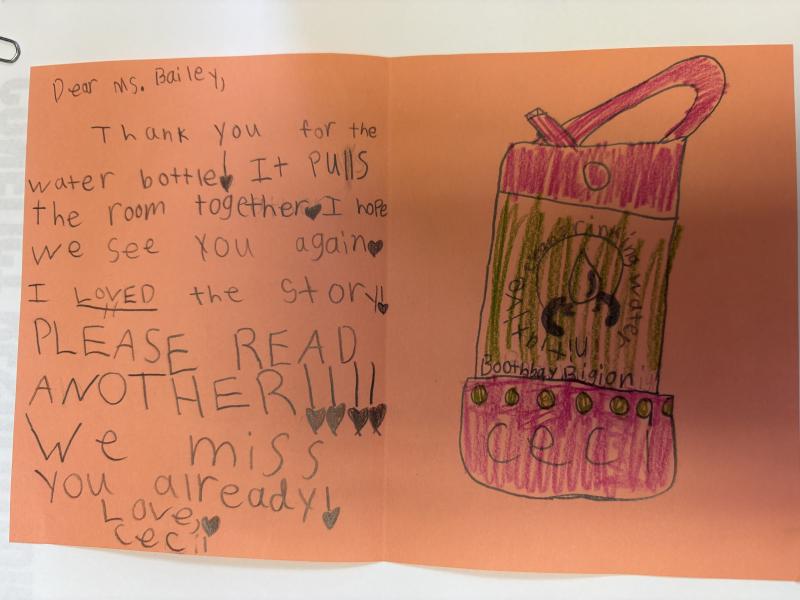 Dear Ms. Bailey,
Thank you for the
water bottle! It pulls
the room together I hope
we see you again
I LOVED the story!
PLEASE READ
ANOTHER!!!!
We miss
you already!
Love,
Ceci
clean drinking water
initiative
Boothbay Rigion
CeCi